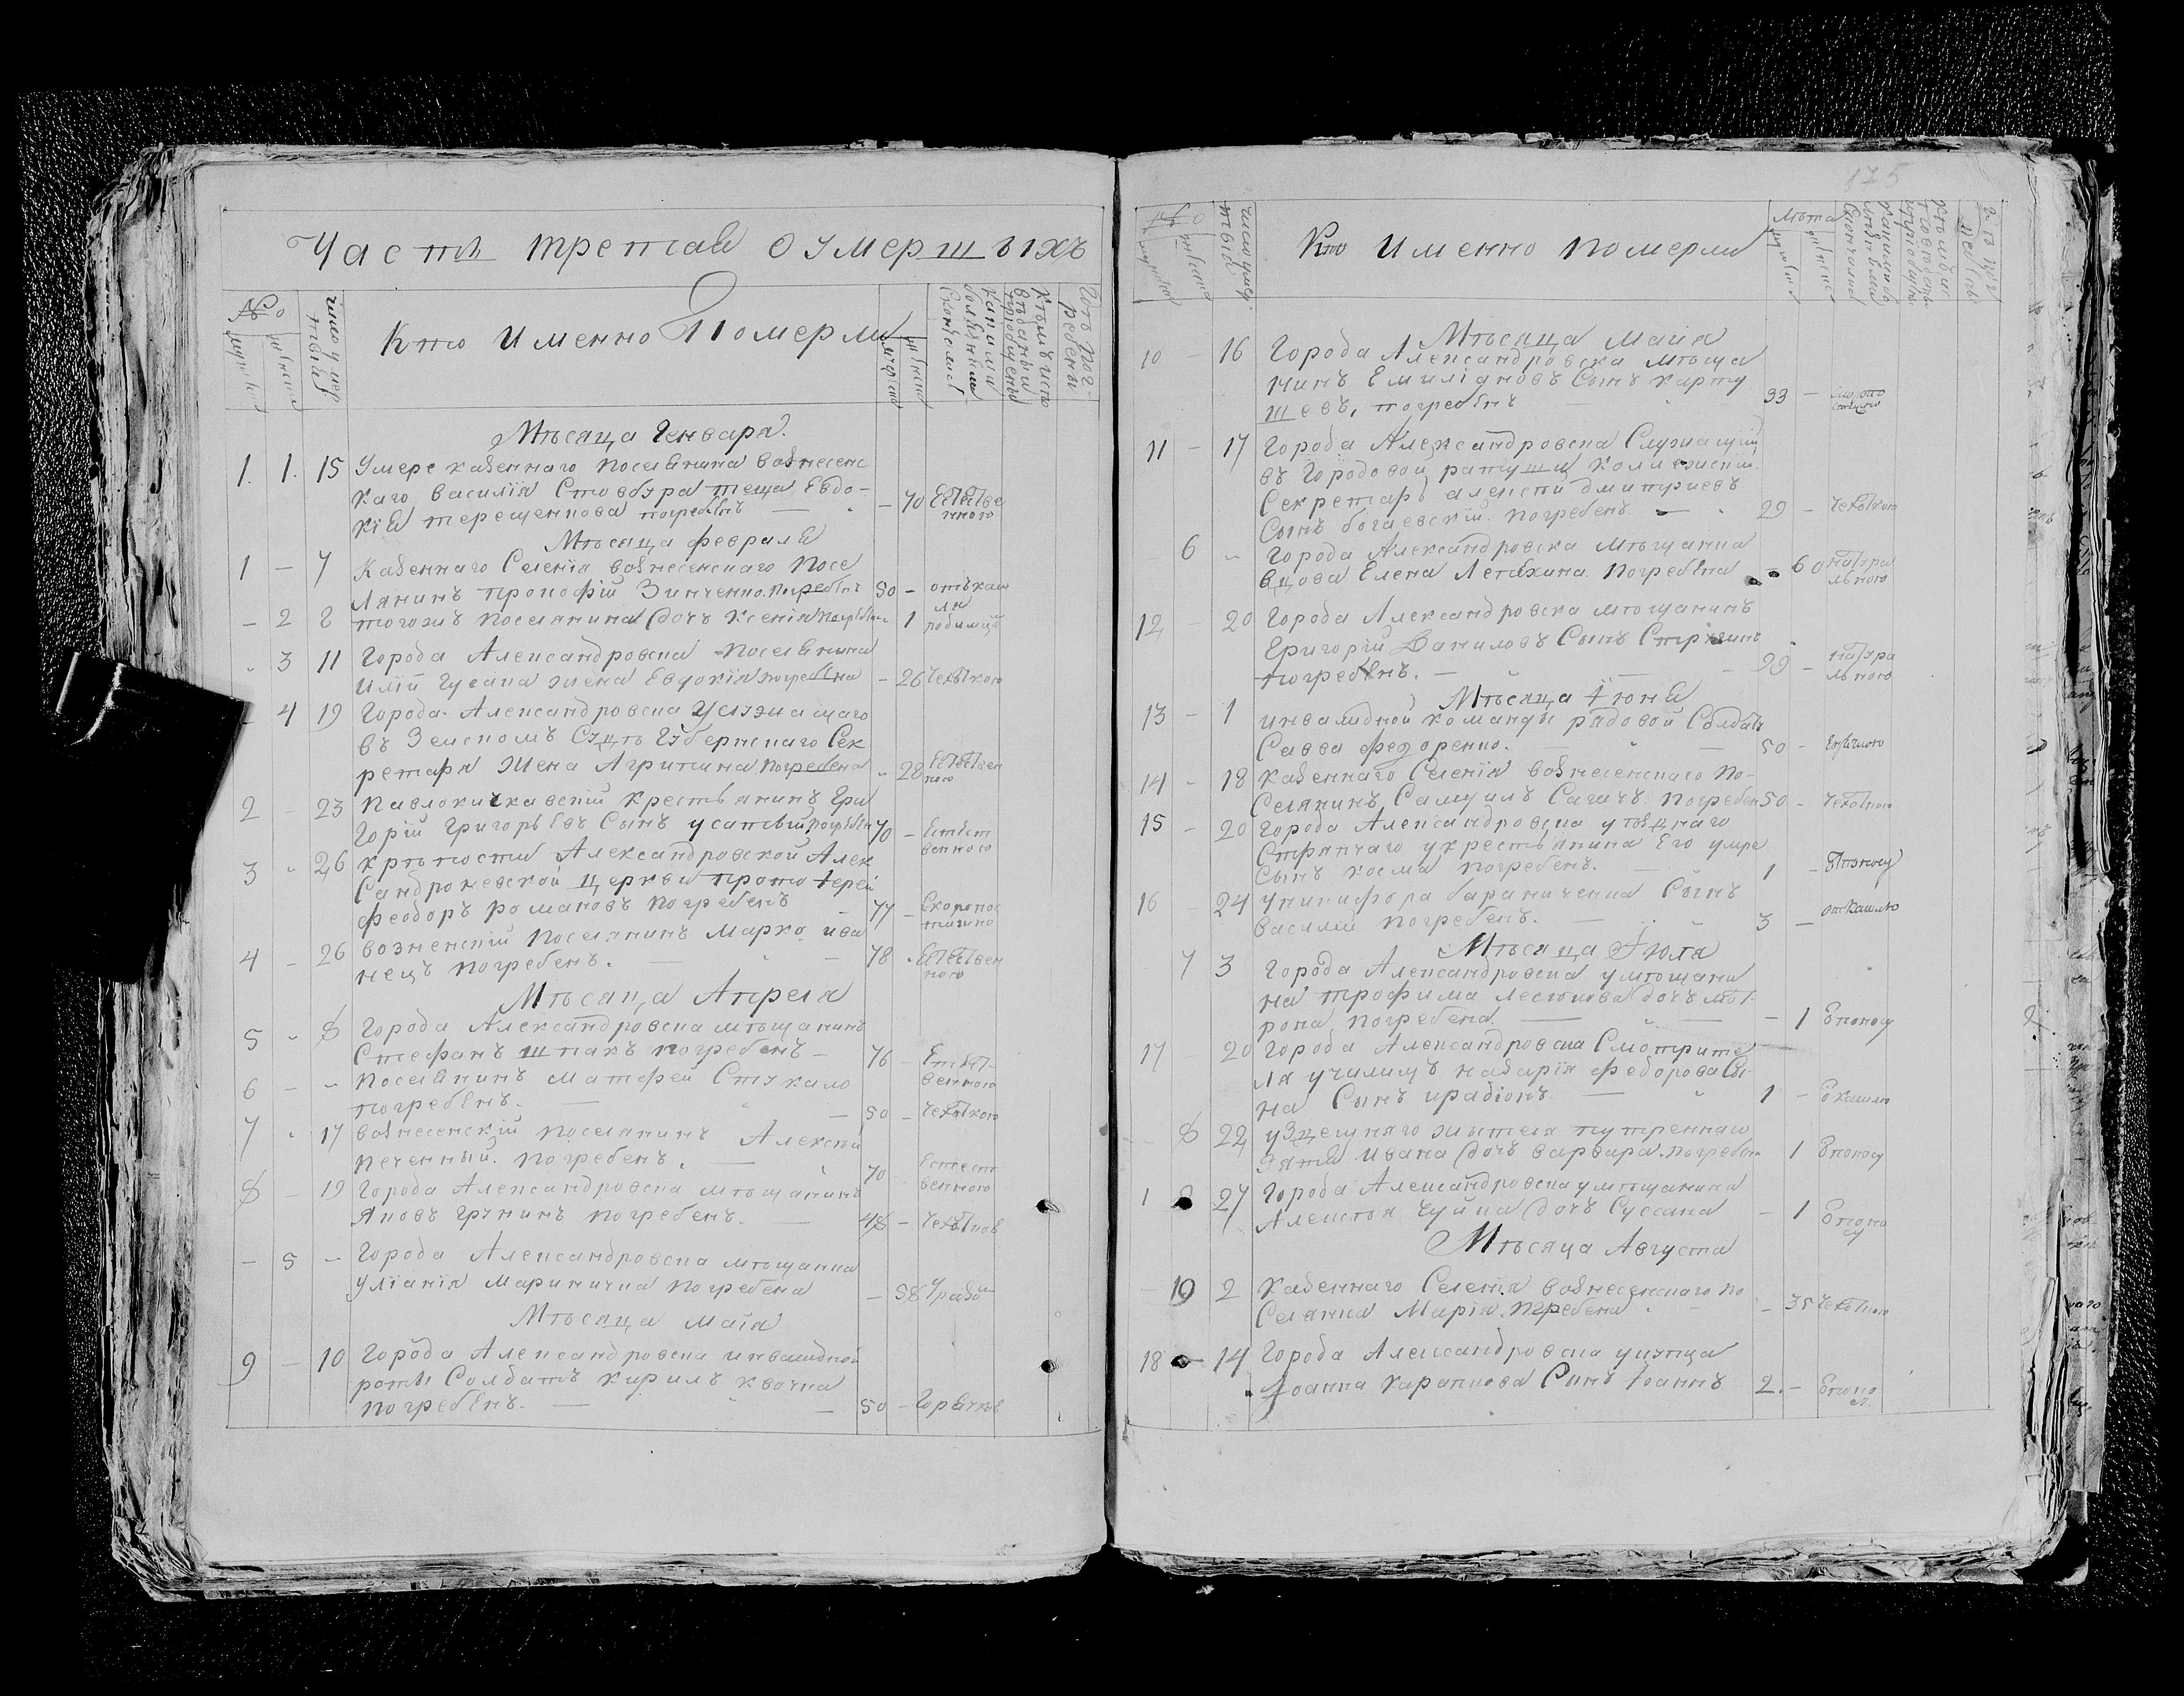 Часть третая о умершыхъ
№
число умер
Кто именно Померли
Мѣсяца Генваря.
1. 1. 15 Умере казеннаго поселянина вознесенс
каго василія Стовбура теща Евдо-
кія терещенкова погребенъ — 70 Естестве
нного
Мѣсяца февраля
1 — 7 Казеннаго Селенія вознесенскаго посе
лянинъ прокофій Зинченко. погребенъ 50 — отъ каш
ля
— 2 8 тогожъ поселянина дочь ксенія погребена 1 родимце
3 11 Города Александровска поселянина
илїи гусака жена Евдокія погребена — 26 чехоткою
4 19 Города Александровска услужащаго
въ Земскомъ Судѣ Губернскаго Сек
ретаря жена Агрипина погребена 28 Естествен
ного
2 — 23 Павлокичкавскій крестьянинъ Гри
горій григорьевъ Сынъ усатый, погребенъ 70 — Естест
венного
3 26 крѣпости Александровской Алек
сандроневской церкви протоіерей
феодоръ романовъ погребенъ — 77 — Скоропос
тижно
4 — 26 возненскій поселянинъ марко ива
нецъ погребенъ. — 78 Естествен
ного
Мѣсяца Апреля
5 8 Города Александровска мѣщанинъ
Стефанъ шпакъ погребенъ — 76 — Естест
венного
6 — поселянинъ матфей Стукало
погребенъ. — 50 — чехоткою
7 17 вознесенскій поселянинъ Алексѣй
печенный. погребенъ. — 70 Естест
венного
8 — 19 Города Александровска мѣщанинъ
яковъ грунинъ погребенъ. — 48 —
— 5 — Города Александровска мѣщанка
уліанія маринична погребена — 58
Мѣсяца маія
9 — 10 Города Александровска инвалидной
роты Солдатъ кирилъ квочка
погребенъ. — 50 — Горячкою
175
№
число умер
Кто именно померли
лѣта
Мѣсяца маія
10 — 16 Города Александровска мѣща
нинъ Емиліановъ Сынъ карту
шевъ, погребенъ 33 — скоропо
стижно
11 — 17 Города Александровска Служащій
въ Городовой ратушѣ коллежскій
Секретарь алексѣй дмитріевъ
Сынъ богаевскій. погребенъ. — 29 — чехоткою
6 Города Александровска мѣщанка
вдова Елена Летяхина погребена — 60 натура
льного
12 — 20 Города Александровска мѣщанинъ
Григорій Даниловъ Сынъ
погребенъ. — 29 — натура
льного
Мѣсяца Іюня
13 — 1 инвалидной команды рядовой Солдатъ
Савва федоренко. — 50 —
14 — 18 казеннаго Селенія вознесенскаго по-
селянинъ Самуилъ Сагачъ погребен 50 — чехоткою
15 — 20 Города Александровска уѣзднаго
Стряпчаго укрестьянина Его умре
Сынъ косма погребенъ. — 1 —
16 — 24 уникифора бараниченка Сынъ
василій погребенъ. — 3 — от кашлю
Мѣсяца Іюля
7 3 Города Александровска умѣщани
на трофима лесюкова дочь мат-
рона погребена — 1 Споносу
17 — 20 Города Александровска Смотрите
ля училищъ назарія федорова Сы
на Сынъ ирадіонъ — 1 — Скашлю
— 8 22 уздешняго жытеля
зятя ивана дочь варвара. погребена 1 Споносу
27 Города Александровска умѣщанина
Алексѣя чуйка дочь Сусана — 1 Спонo
су
Мѣсяца Августа
— 10 2 казеннаго Селенія вознесенскаго по
селянка Марія. погребена — 35 чехоткою
18 — 14 Города Александровска укупца
Іоанна карапкова Сынъ Іоаннъ 2. —